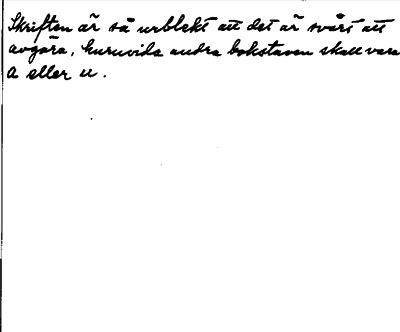 Skriften är så urblekt att det är svårt att
avgöra, huruvida andra bokstaven skall vara
a eller u.